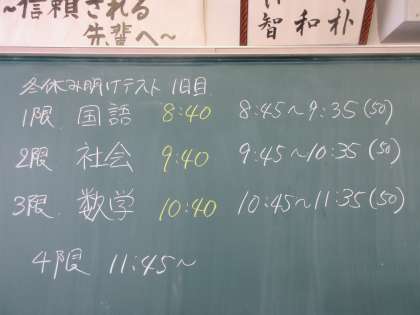 ～信頼される
先輩へ～
智 和 朴
冬休み明けテスト 1日目
1限 国語 8:40 8:45～9:35(50)
2限 社会 9:40 9:45～10:35(50)
3限 数学 10:40 10:45～11:35(50)
4限 11:45～